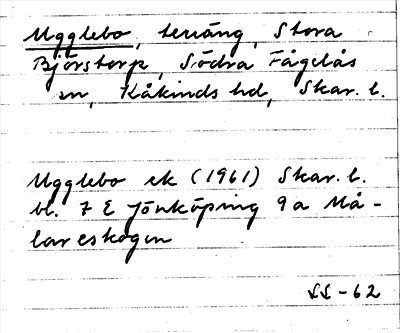 Ugglebo, terräng, Stora
Björstorp, Södra Fågelås
sn, Kåkinds hd, Skar. l.
Ugglebo ek (1961) Skar. l.
bl. 7 E Jönköping 9a Må-
lareskogen
SS-62